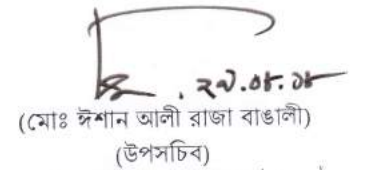 ২৯.০৮.১৮
(মোঃ ঈশান আলী রাজা বাঙালী)
(উপসচিব)